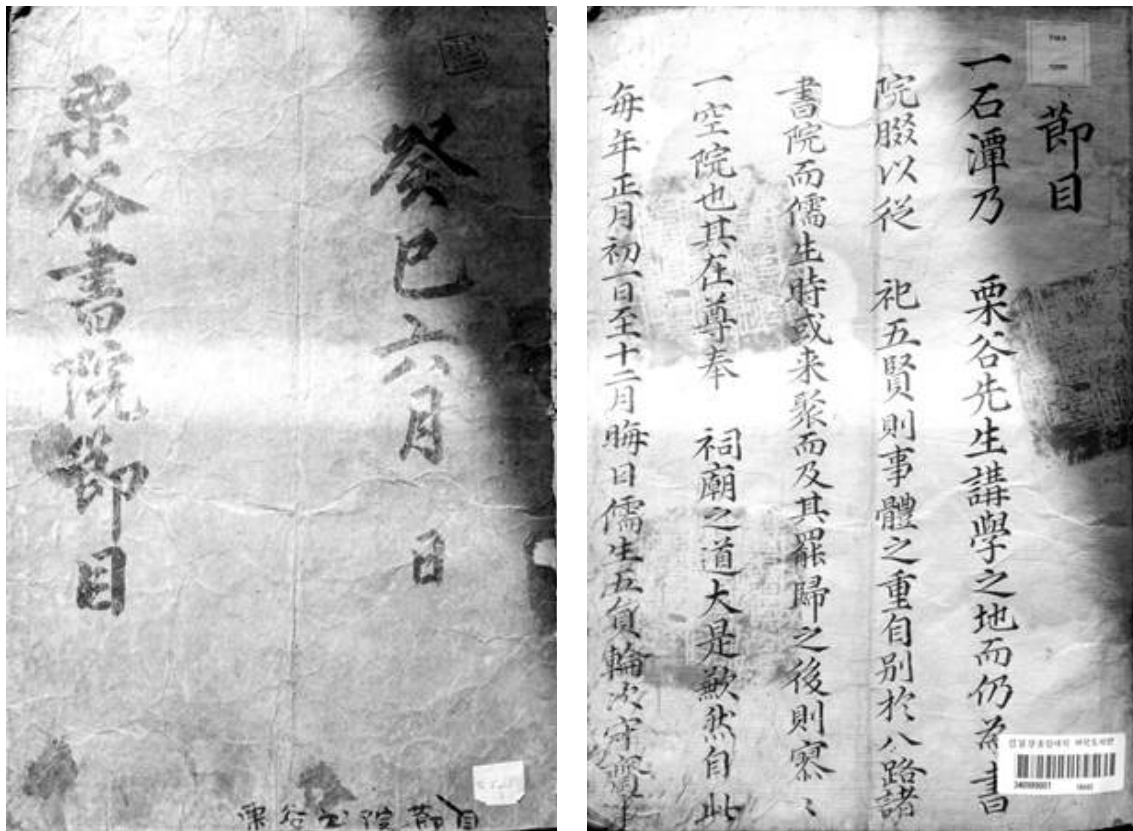 癸巳六月 日
栗谷書院節目
栗谷書院節目
節目
一石潭乃 栗谷先生講學之地而仍為書
院腏以從 祀五賢則事體之重自別於八路諸
書院而儒生時或来聚而及其罷歸之後則寥〻
一空院也其在尊奉 祠廟之道大是歉然自此
每年正月初一日至十二月晦日儒生五員輪次守齋
340000001